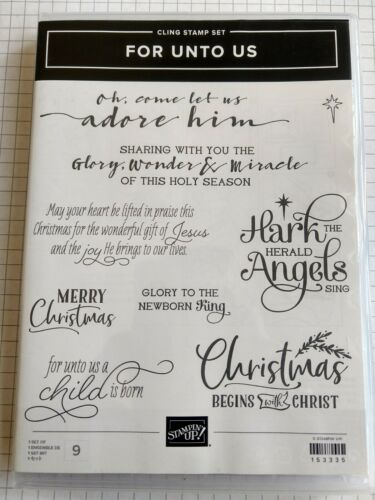 CLING STAMP SET
FOR UNTO US
Oh, come let us
adore him
SHARING WITH YOU THE
Glory, Wonder & Miracle
OF THIS HOLY SEASON
May your heart be lifted in praise this
Christmas for the wonderful gift of Jesus
and the joy He brings to our lives.
Hark THE
HERALD
Angels
SING
MERRY
Christmas
GLORY TO THE
NEWBORN King
for unto us a
child is born
Christmas
BEGINS with CHRIST
STAMPIN' UP!
9
© STAMPIN' UP!
153335